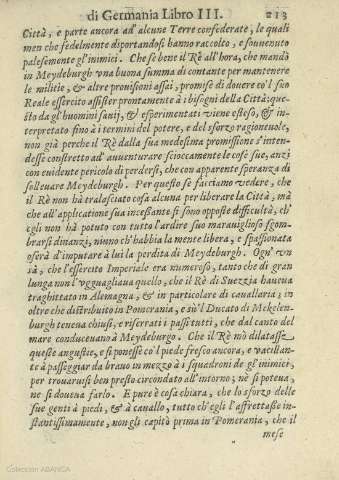 di Germania Libro III. 213
Città, e parte ancora ad'alcune Terre confederate, le quali
men che fedelmente diportandosi hanno raccolto, e souuenuto
palesemente gl'inimici. Che se bene il Rè all'hora, che mandò
in Meydeburgh vna buona summa di contante per mantenere
le militie, & altre prouisioni assai, promise di douere co'l suo
Reale essercito assister prontamente à i bisogni della Città: que-
sto da gl'huomini sanij, & esperimentati viene esteso, & in-
terpretato fino à i termini del potere, e del sforzo ragioneuole,
non già perche il Rè dalla sua medesima promissione s'inten-
desse constretto ad'auuenturare scioccamente le cose sue, anzi
con euidente pericolo di perdersi, che con apparente speranza di
solleuare Meydeburgh. Per questo se facciamo vedere, che
il Rè non hà tralasciato cosa alcuna per liberare la Città, mà
che all'applicatione sua incessante si sono opposte difficultà, ch'
egli non hà potuto con tutto l'ardire suo marauiglioso sgom-
brarsi dinanzi, niuno ch'habbia la mente libera, e spassionata
oserà d'imputare à lui la perdita di Meydeburgh. Ogn'vn
sà, che l'essercito Imperiale era numeroso, tanto che di gran
lunga non l'vgguagliaua quello, che il Rè di Suezzia haueua
traghittato in Alemagna, & in particolare di cauallaria; in
oltre che distribuito in Pomerania, e su'l Ducato di Mekelen-
burgh teneua chiusi, e riserrati i passi tutti, che dal canto del
mare conduceuano à Meydeburgo. Che il Rè nò dilatasse
queste angustie, e si ponesse co'l piede fresco ancora, e vacillan-
te à passeggiar da brauo in mezzo à i squadroni de gl'inimici,
per trouaruisi ben presto circondato all'intorno; nè si poteua,
ne si doueua farlo. E pure è cosa chiara, che lo sforzo delle
sue genti à piedi, & à cauallo, tutto ch'egli l'affrettasse in-
stantissimamente, non gli capitò prima in Pomerania, che il
mese
Colección ABANCA